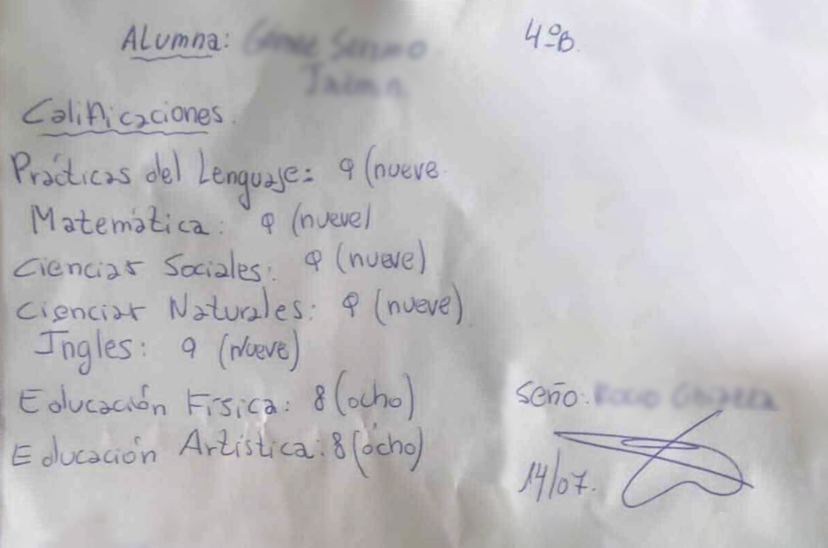 Alumna:
4ºB.
Calificaciones.
Prácticas del Lenguaje: 9 (nueve
Matemática: 9 (nueve)
Ciencias Sociales: 9 (nueve)
Ciencias Naturales: 9 (nueve)
Ingles: 9 (Nueve)
Educación Física: 8 (ocho)
Educación Artística: 8 (ocho)
Seño:
14/07.